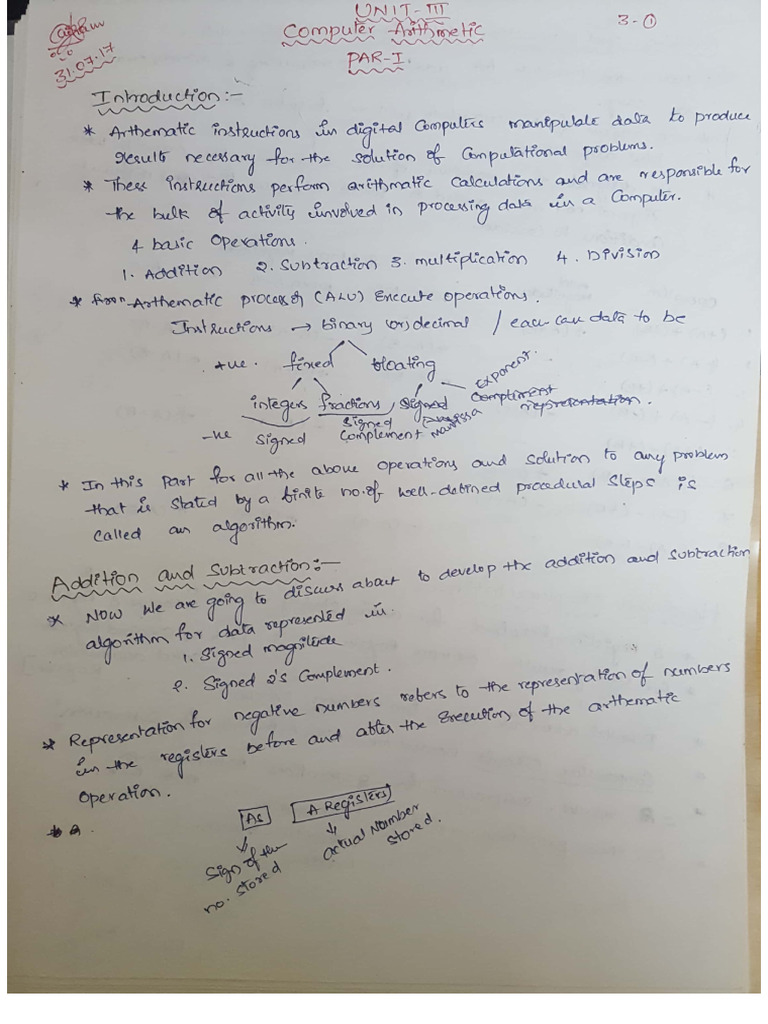 UNIT-III
3-①
Computer Arithmetic
31.07.17
PAR-I.
Introduction:-
* Arthematic instructions in digital Computers manipulable data to produce
results necessary for the solution of Computational problems.
* These instructions perform arithmatic calculations and are responsible for
the bulk of activity involved in processing data in a Computer.
4 basic operations.
1. Addition 2. Subtraction 3. multiplication 4. Division
* Arthematic processor (ALU) Execute operations.
Instructions → binary (or) decimal / each can data to be
+ve. fixed floating
Exponent.
integers fractions, signed compliment representation.
-ve signed signed complement Mantissa
* In this part for all the above operations and solution to any problem
that is stated by a finite no. of well-defined procedural steps is
called an algorithm.
Addition and Subtraction:-
* Now we are going to discuss about to develop the addition and subtraction
algorithm for data represented in.
1. Signed magnitude
2. Signed 2's Complement.
* Representation for negative numbers refers to the representation of numbers
in the registers before and after the Execution of the arthematic
operation.
As A Registers
Sign of the no. stored
actual Number stored.